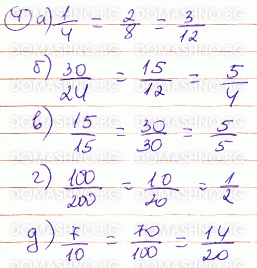 4) а) 1/4 = 2/8 = 3/12
б) 30/24 = 15/12 = 5/4
в) 15/15 = 30/30 = 5/5
г) 100/200 = 10/20 = 1/2
д) 7/10 = 70/100 = 14/20
DOMASHNO.BG